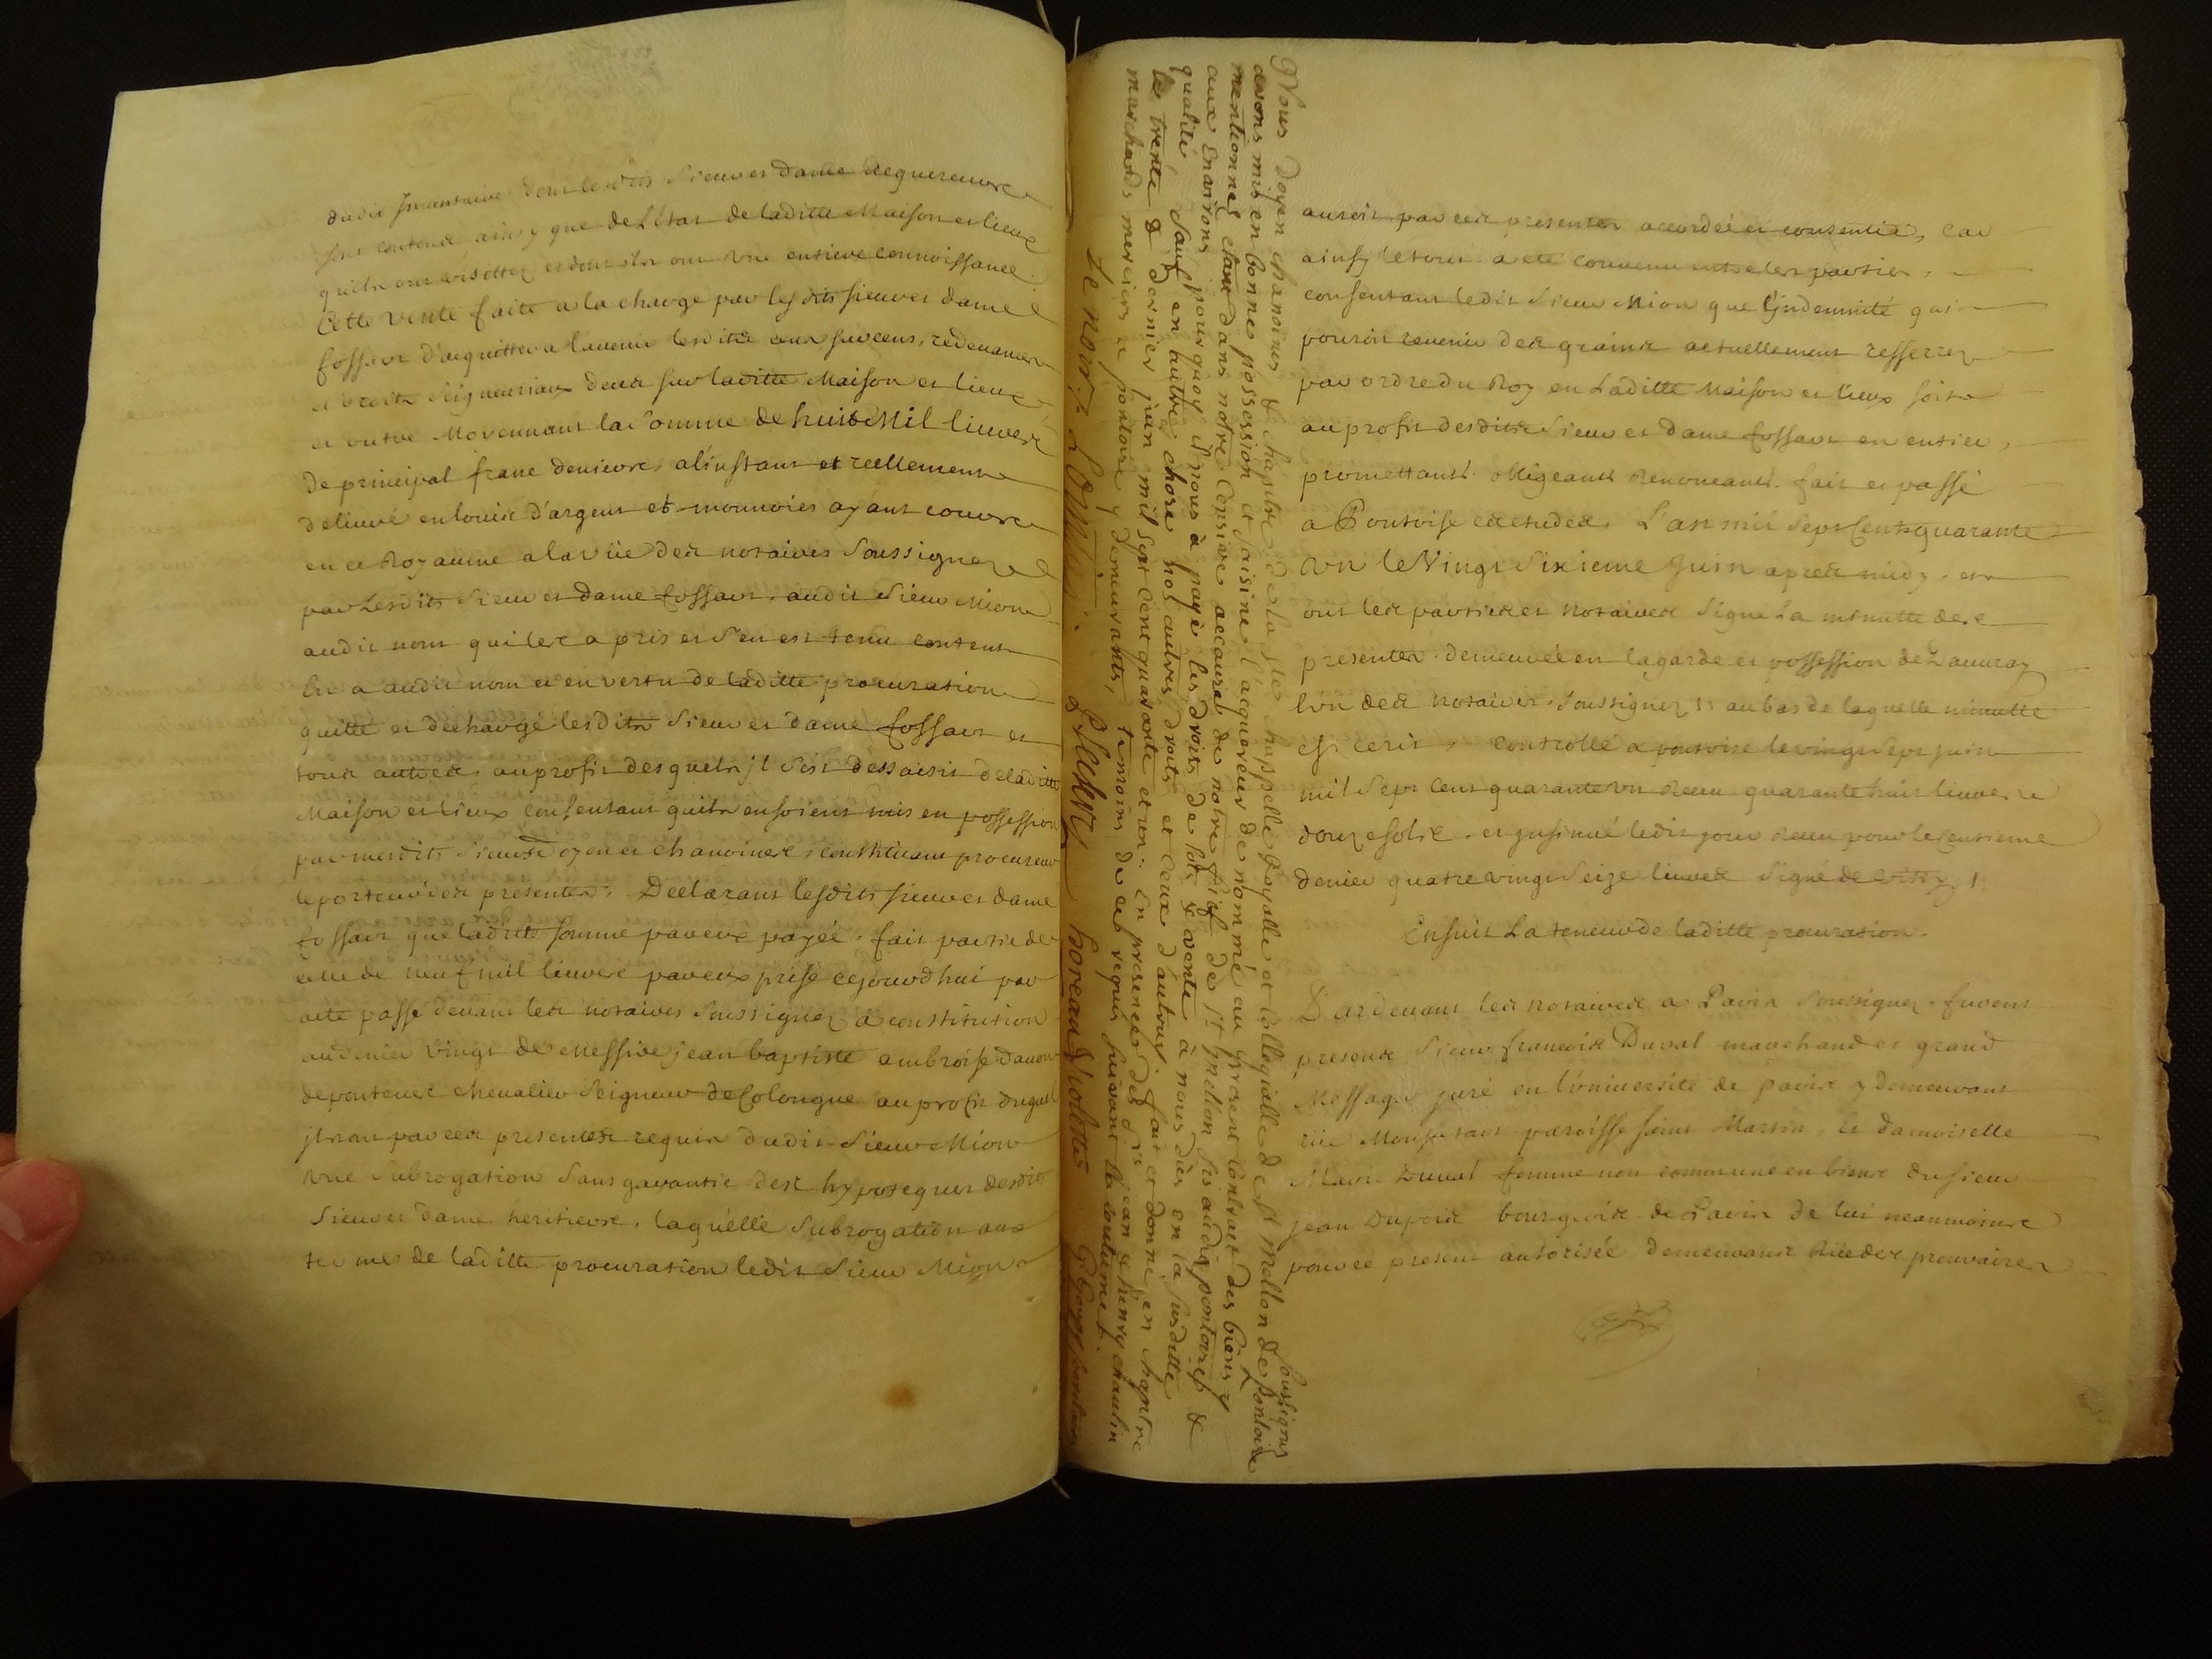 dudit Inventaire dont lesdits Sieur et dame acquereurs
sont contents ainsy que de l'Etat de laditte Maison et lieux
quils ont visittez et dont ils ont une entiere connoissance
Cette vente faite a la charge par lesdits sieur et dame
fossart d'acquitter a l'avenir lesdits cens surcens, redevances
et droits seigneuriaux deus sur laditte Maison et lieux
et outre Moyennant la Somme de huit Mil livres
de principal franc deniers, a l'instant et reellement
delivré en louis d'argent et monnoies ayant cours
en ce Royaume a la vüe des notaires Soussignez
par Lesdits Sieur et dame fossart, audit Sieur Mion
audit nom qui les a pris et s'en est tenu content
En a audit nom et en vertu de laditte procuration
quitté et dechargé lesdits Sieur et dame fossart et
tous autres, au profit desquels jl s'est dessaisis de laditte
Maison et lieux consentant quils en soient mis en possession
par mesdits Sieurs doyen et chanoines, constituant procureur
le porteur des presentes. Declarant lesdits sieur et dame
fossart que laditte somme par eux payée, fait partie de
celle de neuf mil livres par eux prise cejourd'hui par
acte passé devant les notaires Soussignez a constitution
au denier vingt de Messire jean baptiste ambroise
chevalier Seigneur de Cologne au profit duquel
jls ont par ces presentes requis dudit Sieur Mion
une Subrogation Sans garantie des hypoteques desdits
Sieur et dame heritiers, laquelle Subrogation aux
termes de laditte procuration ledit Sieur Mion
Nous Doyen chanoines & chapitre de la Ste chappelle Royalle et collegialle de St Mellon de Pontoise Soussignés
avons mis en bonne possession et saisine l'acquereur denommé au present contrat des biens y
mentionnés etant dans notre Censive de notre fief de St Mellon sis audit pontoise &
aux Environs pourquoy il nous à payé les droits de lots & vente à nous dûs en la susditte
qualité, Sauf en autre chose nos autres droits et ceux d'autruy. fait et donné en chapitre
le trente & dernier juin mil sept cent quarante et un. En presence des Srs jean & henry chaulin
marchands merciers à pontoise y demeurants, temoins de ce requis suivant la coutume.
auroit par ces presentes accordée et consentie, Car
ainsy le tout a eté convenu entre les parties,
consentant ledit Sieur Mion que l'jndemnité qui
pouroit revenir des grains actuellement resserrez
par ordre du Roy en Laditte Maison et lieux soit
au profit desdits Sieur et dame fossart en entier,
promettant obligeant Renonceant. fait et passé
a Pontoise es etudes L'an mil Sept Cent quarante
Un le Vingt Sixieme Juin apres midy. et
ont les parties et Notaires Signé La minutte des
presentes demeurée en la garde et possession de Lauvray
l'un des notaires Soussignez au bas de laquelle minutte
est ecrit, Controllé a pontoise le vingt Sept juin
mil Sept Cent quarante un Receu quarante huit livres
douze sols. et jnsinué ledit jour Receu pour le Centieme
denier quatre vingt Seize livres Signé de
Ensuit La teneur de laditte procuration
Pardevant les notaires a Paris Soussignez. furent
presens Sieur francois Duval marchand et grand
Messager juré en l'université de paris y demeurant
rüe paroisse Saint Martin, Et damoiselle
Marie Duval femme non commune en biens du Sieur
jean bourgeois de Paris de lui neanmoins
pour ce present autorisée demeurant Rüe des prouvaires